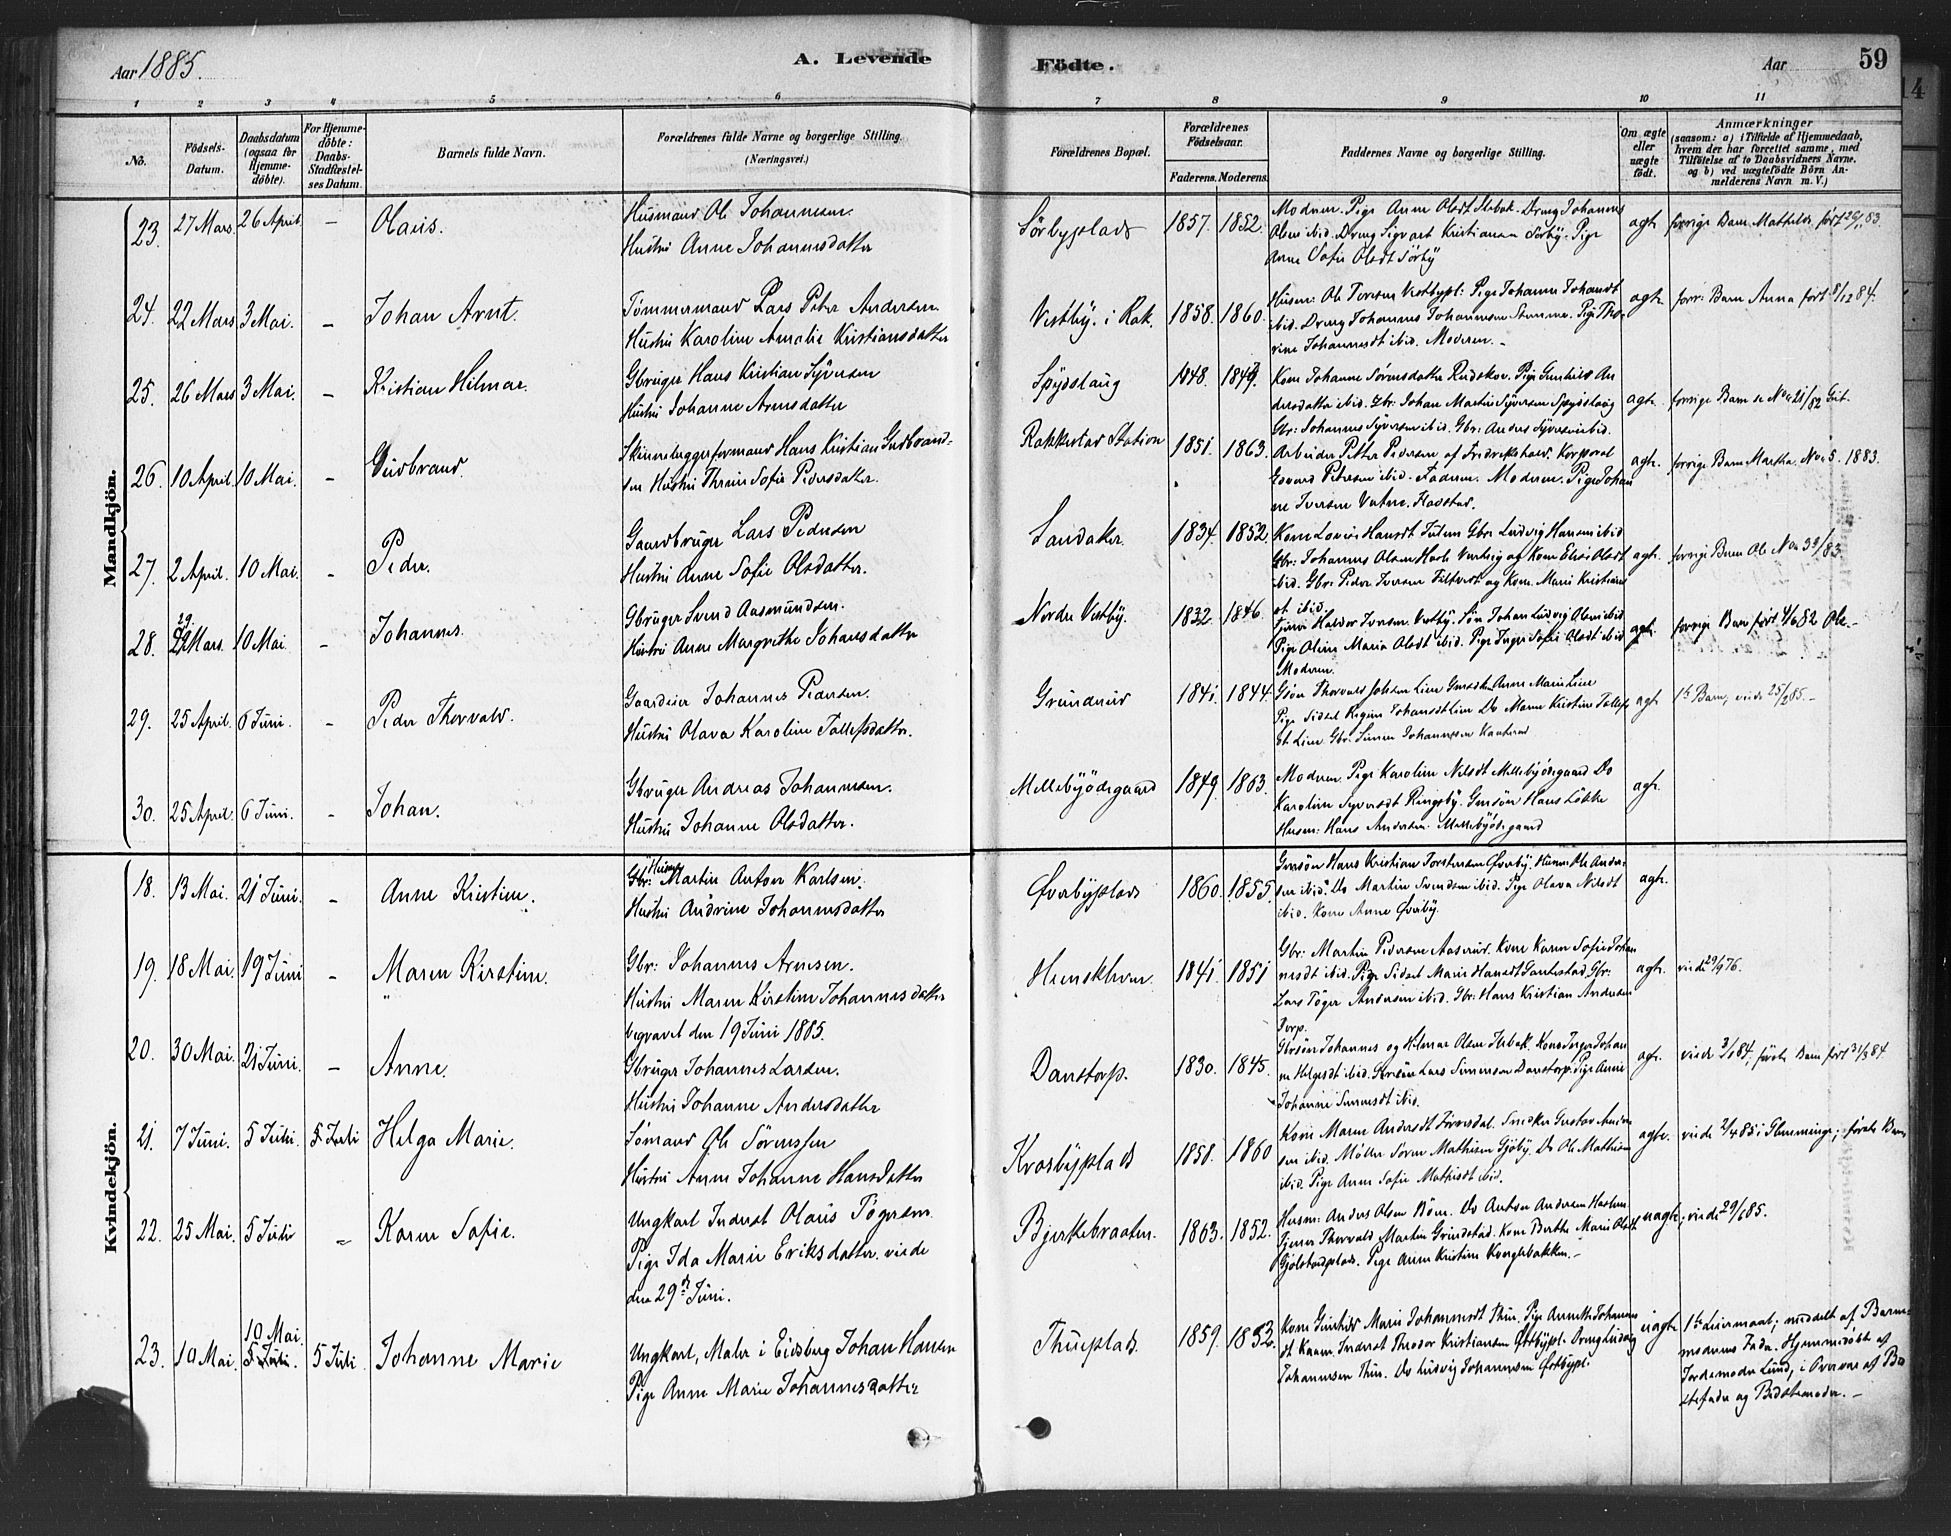 Aar 1885.
A. Levende
Födte.
Aar
59
1 2 3 4 5 6 7 8 9 10 11
No.
Födsels-
Datum.
Daabsdatum
(ogsaa for
Hjemme-
döbte).
For Hjemme-
döbte:
Daabs-
Stadfæstel-
ses Datum.
Barnets fulde Navn.
Forældrenes fulde Navne og borgerlige Stilling.
(Næringsvei.)
Forældrenes Bopæl.
Forældrenes
Födselsaar.
Faderens. Moderens.
Faddernes Navne og borgerlige Stilling.
Om ægte
eller
uægte
födt.
Anmærkninger
(saasom: a) i Tilfælde af Hjemmedaab,
hvem der har forrettet samme, med
Tilföielse af to Daabsvidners Navne.
og b) ved uægtefödte Börn An-
melderens Navn m. V.)
Mandkjön.
23. 27 Mars 26 April – Olaus.
Husmand Ole Johannesen.
Hustru Anne Johannesdatter
Sörbyplads 1857. 1852.
Moderen. Pige Anne Olsdt Isebak. Dreng Johannes
Olsen ibid. Dreng Sigvart Kristiansen Sörby. Pige
Anne Sofie Olsdt Sörby
ægte. forrige Barn Mathilde född 26/11 83.
24. 22 Mars 3 Mai. – Johan Arnt.
Tömmermand Lars Peter Andersen.
Hustru Karoline Amalie Kristiansdatter
Vestby. i Rak. 1858. 1860.
Husm: Ole Iversen Vestbypl: Pige Johanne Johansdt
ibid. Dreng Johannes Johannesen Stumme. Pige Tho-
rine Johannesdt ibid. Moderen. –
ægte forr: Barn Anna född 8/12 84.
25. 26 Mars 3 Mai. – Kristian Hilmar.
Gbruger Hans Kristian Syversen
Hustru Johanne Arnesdatter
Spydslaug 1848. 1849.
Kone Johanne Sörensdatter Rudskov. Pige Gunhild An
dersdatter ibid. Gbr. Johan Martin Syversen Spydslaug
Gbr: Johannes Syversen ibid. Gbr. Anders Syversen ibid.
ægte. forrige Barn se No 21/82
26. 10 April. 10 Mai. – Gudbrand.
Skinneleggerformand Hans Kristian Gudbrand-
sen Hustru Thrine Sofie Pedersdatter.
Rakkestad Station 1851. 1863.
Arbeider Petter Pedersen af Fredrikshald. Korporal
Edvard Petersen ibid. Faderen. Moderen. Pige Johan
ne Iversen Vatne. Fladstad.
ægte. forrige Barn Martha. No 5. 1883.
27. 2 April. 10 Mai. – Peder.
Gaardbruger Lars Pedersen
Hustru Anne Sofie Olsdatter.
Sandaker. 1834. 1852
Kone Lovise Hansdt Tutun Gbr. Ludvig Hansen ibid
Gbr: Johannes Olsen Harb Vestvig og Kone Elise Olsdt
ibid. Gbr: Peder Iversen Filtvedt og Kone Marie Kristians
dt ibid.
ægte. forrige Barn Ole No 39/83.
28. 29 Mars. 10 Mai. – Johannes.
Gbruger Svend Aasmundsen.
Hustru Anne Margrethe Johansdatter
Nordre Vestby. 1832 1846.
Tjener Haldor Iversen Vestby. Sön Johan Ludvig Olsen ibid
Pige Oline Maria Olsdt ibid. Pige Inger Sofie Olsdt ibid
Moderen
ægte. forrige Barn född 4/6 82 Ole –
29. 25 April. 6 Juni. – Peder Thorvald.
Gaardeier Johannes Pedersen.
Hustru Olava Karoline Tollefsdatter.
Grundrud 1841. 1844.
Gsön Thorvald Johsen Lien Gmsk Anne Marie Lien
Pige Sidsel Regine Johansdt Lien Do Maren Kristine Tollefs
dt Lien. Gbr. Simen Johannesen Kanterud
ægte. 1ste Barn, viede 25/2 85. –
30. 25 April. 6 Juni. – Johan.
Gbruger Andreas Johannesen.
Hustru Johanne Olsdatter.
Mellebyödegaard 1849. 1863.
Moderen. Pige Karoline Nilsdt Mellebyödegaard Do
Karoline Syversdt Ringsby. Gmsön Hans Lökke
Husm: Hans Andersen. Mellebyödegaard
ægte.
Kvindekjön.
18. 13 Mai. 21 Juni. – Anne Kristine.
Gbr: Husm Martin Anton Karlsen.
Hustru Andrine Johannesdatter
Överbyplads 1860. 1855.
Gmsön Hans Kristian Torstensen Överby. Husm Ole Ander-
sen ibid. Do Martin Svendsen ibid. Pige Olava Nilsdt
ibid. Kone Anne Överby.
ægte.
19. 18 Mai. 19 Juni – Maren Kirstine.
Gbr: Johannes Arnesen.
Hustru Maren Kirstine Johannesdatter
begravet den 19 Juni 1885.
Heenskhven 1841 1851
Gbr: Martin Pedersen Aaserud. Kone Karen Sofie Johan
nesdt ibid. Pige Sidsel Marie Hansdt Gautestad. Gbr:
Lars Töger Andersen ibid. Gbr: Hans Kristian Andersen
Dorp.
ægte. viede 29/9 76.
20. 30 Mai. 21 Juni. – Anne.
Gbruger Johannes Larsen.
Hustru Johanne Andersdatter
Danstorp. 1830. 1845.
Gbrsön Johannes og Hilmar Olsen Isebak. Kone Inger Johan
ne Helgesdt ibid. Gbrsön Lars Simensen Danstorp. Pige Anne
Johanne Simensdt ibid.
ægte. viede 3/1 84, förste Barn född 31/3 84
21. 7 Juni. 5 Juli. 5 Juli Helga Marie.
Sömand Ole Sörenssen
Hustru Anne Johanne Hansdatter
Krosbyplads 1858. 1860
Kone Maren Andersdt Fövresdal. Smedker Gustav Ander
sen ibid. Möller Sören Mathisen Gjöby. Do Ole Mathisen
ibid. Pige Anne Sofie Mathisdt ibid.
ægte. viede 2/4 85 i Glemminge; förste Barn
22. 25 Mai. 5 Juli – Karen Sofie.
Ungkarl Inderst Olaus Tögersen.
Pige Ida Marie Eriksdatter. viede
den 29de Juni.
Bjerkebraaten. 1863. 1852.
Husm: Anders Olsen Böen. Do Anton Andersen Haslem
Tjener Thorvald Martin Grindstad. Kone Berthe Marie Olsdt
Gjölstadplads. Pige Anne Kristine Konglebakken. –
uægte; viede 29/6 85.
23. 10 Mai. 10 Mai 5 Juli. 5 Juli. Johanne Marie
Ungkarl, Maler i Eidsberg Johan Hansen
Pige Anne Marie Johannesdatter
Thueplads 1859. 1853.
Kone Gunhild Marie Johannesdt Thue. Pige Annette Johannes
dt Kaasen. Inderst Theodor Kristiansen Östbypl. Dreng Ludvig
Johannesen Thue. Do Ludvig Johannesen Östbypl.
uægte 1ste Leiermaal; meddelt af Barne-
moderens Fader. Hjemmedöbt af
Jordemoder Lund, i Overvær af Be
stefader og Bedstemoder. –